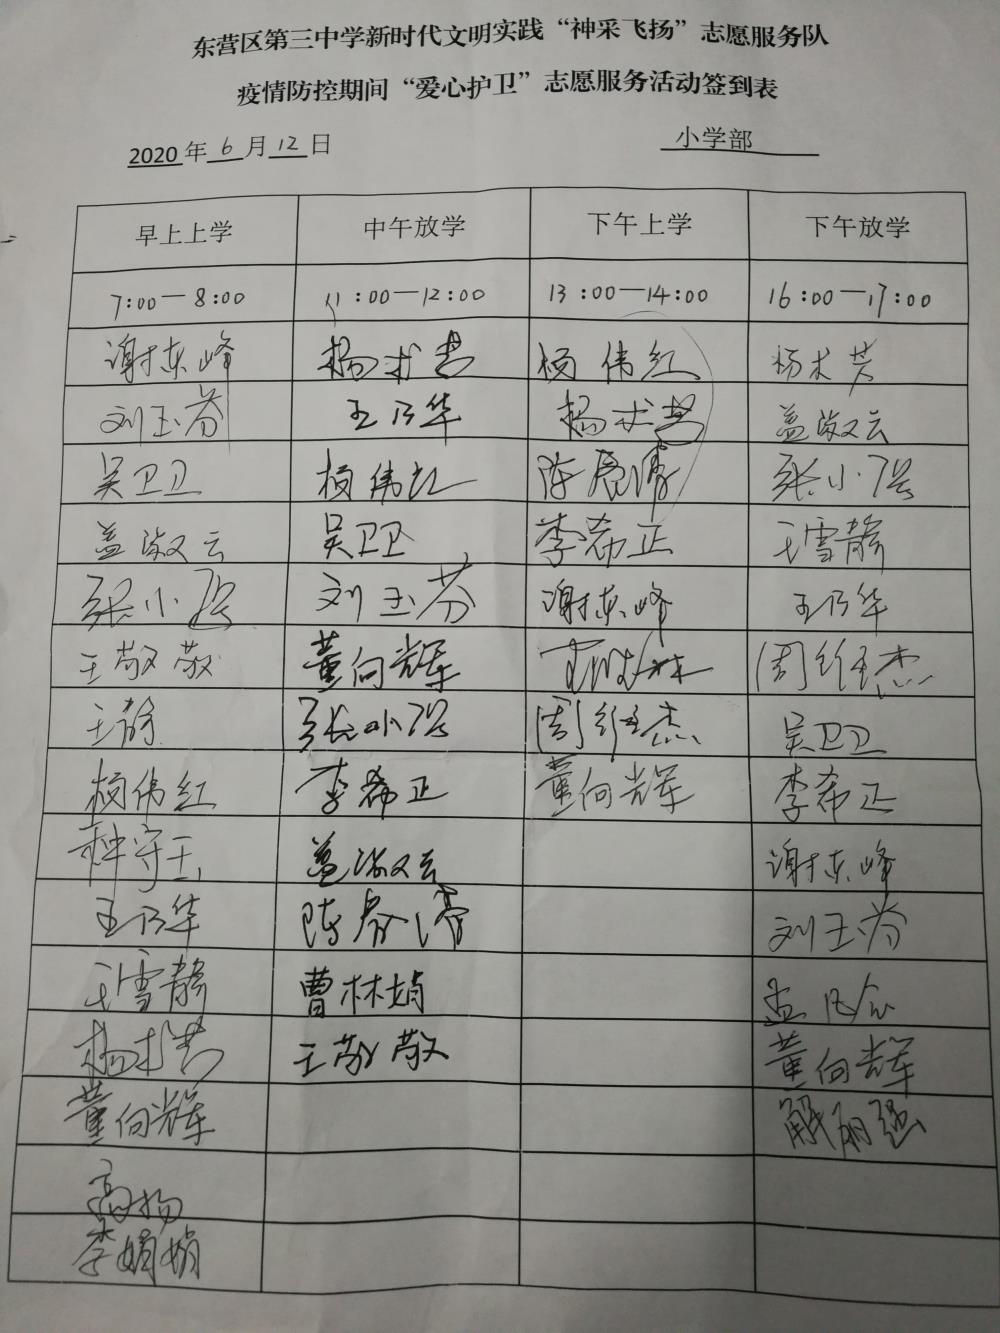 东营区第三中学新时代文明实践“神采飞扬”志愿服务队
疫情防控期间“爱心护卫”志愿服务活动签到表
2020年6月12日 小学部
早上上学 中午放学 下午上学 下午放学
7:00—8:00 11:00—12:00 13:00—14:00 16:00—17:00
谢东峰 杨术芳 杨伟红 杨术芳
刘玉芬 王乃华 杨术芳 盖淑云
吴卫卫 杨伟红 陈晨清 张小强
盖淑云 吴卫卫 李希正 王雪静
张小强 刘玉芬 谢东峰 王乃华
王敬敬 董向辉 周维杰
王静 张小强 周维杰 吴卫卫
杨伟红 李希正 董向辉 李希正
种守玉 盖淑云 谢东峰
王乃华 陈晨清 刘玉芬
王雪静 曹林娟 孟凡会
杨术芳 王敬敬 董向辉
董向辉 解丽强
高扬
李娟娟